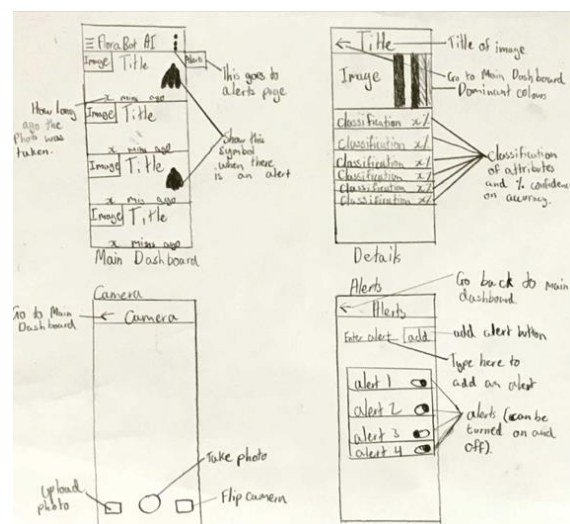 FloraBot AI
Image Title
Alerts
This goes to
alerts page
x mins ago
How long
ago the
photo was
taken.
Image Title
x mins ago
Show this
symbol
when there
is an alert
Image Title
x mins ago
Image Title
x mins ago
Main Dashboard
← Title
Title of image
Image
Go to Main Dashboard
Dominant colours
Classification x%
Classification x%
Classification x%
Classification x%
Classification x%
Classification x%
Classification
of attributes
and % confidence
on accuracy.
Details
Camera
Go to Main
Dashboard
← Camera
Take photo
Upload
photo
Flip camera
Alerts
Go back to main
dashboard.
← Alerts
Enter alert add
add alert button
Type here to
add an alert
alert 1
alert 2
alert 3
alert 4
alerts (can be
turned on and
off).